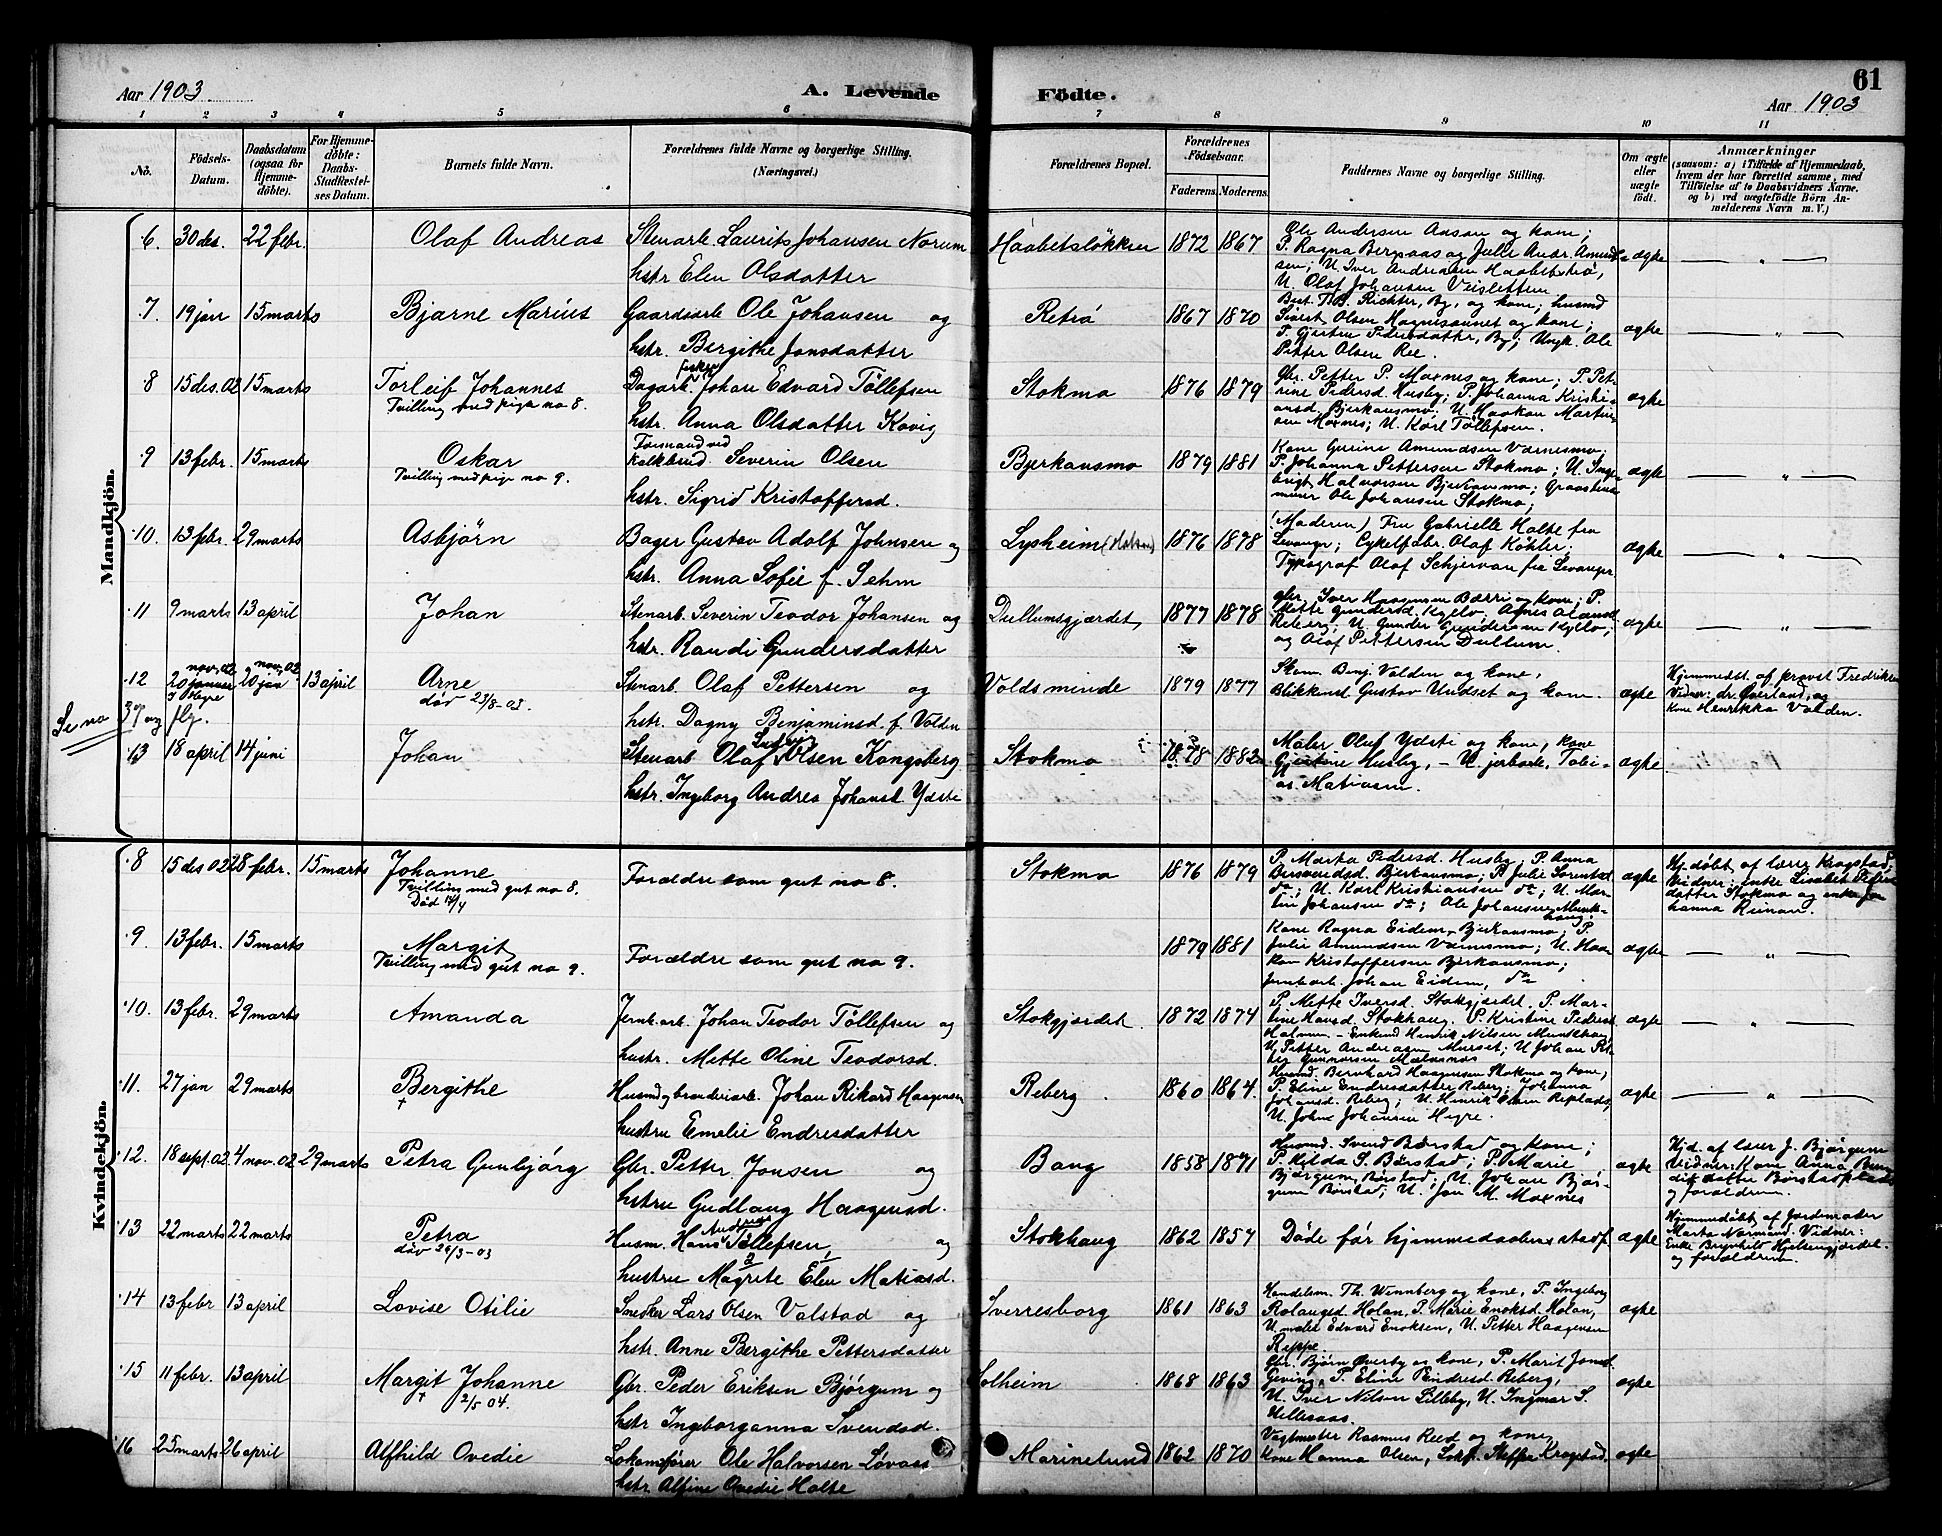 Aar 1903. A. Levende Fødte. 61
Aar 1903
1 2 3 4 5 6 7 8 9 10 11
No. Födsels-Datum. Daabsdatum (ogsaa for Hjemmedöbte). For Hjemmedöbte: Daabs-Stadfæstelses Datum. Barnets fulde Navn. Forældrenes fulde Navne og borgerlige Stilling. (Næringsvei.) Forældrenes Bopæl. Forældrenes Födselsaar. Faderens. Moderens. Faddernes Navne og borgerlige Stilling. Om ægte eller uægte födt. Anmærkninger (saasom: a) i Tilfælde af Hjemmedaab, hvem der har forrettet samme, med Tilföielse af to Daabsvidners Navne, og b) ved uægtefödte Börn Anmelderens Navn m. V.)
Mandkjön.
6. 30 des. 22 febr. Olaf Andreas Stenarb Laurits Johansen Norum Haabetsløkken 1872 1867 Ole Andersen Aasan og kone;
hstr Elen Olsdatter P. Ragna Bergsaas og Julie Andr. Amundsen; U. Iver Andreasen Haabetstrø, ægte
U. Olaf Johansen Veisletten
7. 19 jan 15 marts Bjarne Marius Gaardsarb Ole Johansen og Retrø 1867 1870 Best. Th. B. Richter, By, og kone; husmd
hstr. Bergithe Jonsdatter Sivert Olsen Hognesaunet og kone; ægte
P. Gjertine Pedersdatter, By; Ungk. Ole
Petter Olsen Ree.
8 15 des. 02 15 marts Torleif Johannes Dagarb. Johan Edvard Töllefsen Stokmo 1876 1879 gbr. Petter P. Moxnes og kone; P. Petrine Pedersd. Husby; P. Johanna Kristiansd. Bjerkansmo; U. Haakon Martinsen Moxnes; U. Karl Töllefsen. ægte
Tvilling med pige no 8.
hstr. Anna Olsdatter Kövig
9 13 febr. 15 marts Oskar Formand ved Kalkbrud. Severin Olsen Bjerkansmo 1879 1881 Kone Gurine AmundsenVærnesmo;
Tvilling med pige no 9. P. Johanna Pettersen Stokmo; U. Ingebrigt Halvorsen Bjerkansmo; ægte
hstr. Sigrid Kristoffersd. Ole Johansen Stokmo;
10. 13 febr. 29 marts Asbjørn Bager Gustav Adolf Johnsen og Lysheim 1876 1878 (Moderen) Fru Gabrielle Holte fra
hstr. Anna Sofie f. Sehm Levanger; Cykelfabr. Olaf Köhler; ægte
Typograf Olaf Schjervan fra Levanger
11 9 marts 13 april Johan Stenarb. Severin Teodor Johansen og Dullumsgjærdet 1877 1878 gbr. Iver Haagensen Børri og kone; P.
hstr. Randi Gundersdatter Mette Gundersd. Kyllo, Agnes
Reberg; U. Gunder Gundersen Kyllo; ægte
og Olaf Pettersen Dullum.
12 20 januar nov. 02 20 jan nov. 02 13 april Arne Stenarb. Olaf Pettersen og Voldsminde 1879 1877 Skom. Benj. Valden og kone,
död 23/8-03. Blikkensl. Gustav Undset og kone. ægte
Hjemmedøbt af provst Fredriksen
Vidner: dr. Øverland, og
Kone Henrikka Valden.
hstr. Dagny Benjaminsd. f. Volden
Se no 37 og flg.
13 18 april 14 juni Johan Stenarb Olaf Ludvig Olsen Kongsberg Stokmo 1878 1882 Maler Oluf Ydsti og kone, kone
hstr. Ingeborg Andrea Johansd. Ydsti Gjertine Husby, – U. jerbarb. Tobias Matiasen. ægte
Kvindekjön.
8 15 des 02 28 febr. 15 marts Johanne Forældre som gut no 8. Stokmo 1876 1879 P. Marta Pedersd. Husby; P. Anna
Tvilling med gut no 8. Bersvendsd. Bjerkansmo; P. Julie Sorentsd.
Död 14/4 do; U. Karl Kristiansen do; U. Martin Johansen do; Ole Johansen Munkhaug. ægte
Hj.døbt af lærer Krogstad,
Vidner: enke Lisabet
datter Stokmo og enke Johanna Reinan.
9 13 febr. 15 marts Margit Forældre som gut no 9. 1879 1881 Kone Ragna Eidem Bjerkansmo; P.
Tvilling med gut no 9. Julie Amundsen Værnesmo; U. Haakon Kristoffersen Bjerkansmo; ægte
Jernb.arb. Johan Eidem, do
10. 13 febr. 29 marts Amanda Jernb.arb. Johan Teodor Töllefsen og Stokgjærdet 1872 1874 P. Mette Iversd. Stokgjærdet. P. Martine Hansd. Stokhaug. P. Kristine Pedersd. ægte
hustr. Mette Oline Teodorsd. Holmen – Enkemd Henrik Nilsen Munkhaug
U. Petter Andreasen Murset; U. Johan Petter Gunnarsen
11. 27 jan 29 marts Bergithe Husmd og brænderiarb. Johan Rikard Haagensen Reberg 1860 1864. Husmd. Bernhard Haagensen Stokmo og kone;
hustru Emelie Endresdatter P. Eline Endresdatter Reberg; Johanna
Johansd. Reberg; U. Henrik Olsen ægte
U. John Johansen Hegre.
12. 18 sept. 02 4 nov. 02 29 marts Petra Gunbjörg Gbr. Petter Jonsen og Bang 1858 1871 Husmd. Svend Børstad og kone;
hustru Gudlaug Haagensd. P. Hilda S. Børstad; P. Marie
Bjørgum, Børstad; U. Johan Bjørgum Børstad; U. Jon M. Moxnes ægte
Hjd. af lærer J. Bjørgum
Vidner: Kone Anna datter Børstadplads
og forældrene.
13 22 marts 22 marts Petra Husm. Hans Andreas Töllefsen, og Stokhaug 1862 1857 Döde før hjemmedaabens stadf. ægte
död 26/3-03 hustru Magrete Elen Matiasd.
Hjemmedøbt af Jordemoder
Marta Normand. Vidner:
Enke Brynhild Hjelsengjærdet.
og forældrene.
14 13 febr 13 april Lovise Otilie Snekker Lars Olsen Valstad og Sverresborg 1861 1863 Handelsm. Th. Wennberg og kone, P. Ingeborg
hstr. Anne Bergithe Pettersdatter Rolaugsd. Holan, P. Marie Enoksd. Holan, ægte
U. maler Edvard Enoksen, U. Petter Haagensen
Reppe.
15 11 febr. 13 april Margit Johanne Gbr. Peder Eriksen Bjørgum og Solheim 1868 1863 Gbr. Bjørn Øverby og kone, P. Marit Jonsd.
2/5 04. Geving, P. Eline Endresd. Reberg, ægte
hstr Ingeborganna Svendsd. U. Iver Nilsen Lilleby, U. Ingmar S.
16 25 marts 26 april Alfhild Ovedie Lokomfører Ole Halvorsen Løvaas Marinelund 1862 1870 Vagtmester Rasmus Reed og kone,
hstr Alfine Ovedie Holte Kone Hanna Olsen, Steffen Krogstad. ægte